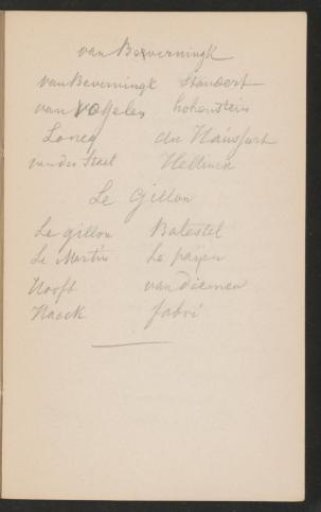 van Beverningk
van Beverningk Standert
van Vosselen hohenstein
Loncq du Hainsfurt
van der Stael Hellinck
Le Gillon
Le gillon Balestel
Le Martin Le païen
Hooft van diemen
Haeck fabri